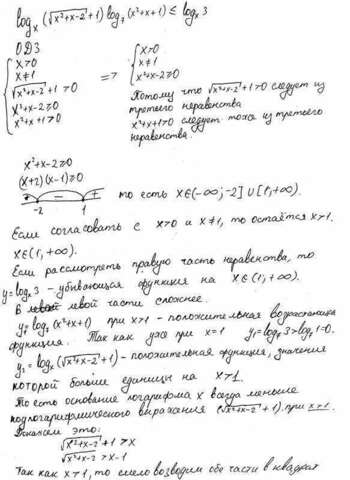 log_x (√(x²+x-2) + 1) log_7 (x²+x+1) ≤ log_x 3
ОДЗ
{ x>0
x≠1
√(x²+x-2) + 1 > 0
x²+x-2 ≥ 0
x²+x+1 > 0
=> { x>0
x≠1
x²+x-2 ≥ 0
Потому что √(x²+x-2) + 1 > 0 следует из
третьего неравенства
x²+x+1>0 следует тоже из третьего
неравенства.
x²+x-2 ≥ 0
(x+2)(x-1) ≥ 0
+ - + -2 1 то есть x∈(-∞;-2]∪[1;+∞).
Если согласовать с x>0 и x≠1, то остаётся x>1.
x∈(1,+∞).
Если рассмотреть правую часть неравенства, то
y=log_x 3 - убывающая функция на x∈(1,+∞).
В левой части сложнее.
y_1=log_7 (x²+x+1) при x>1 - положительная возрастающая
функция. Так как уже при x=1 y_1=log_7 3 > log_7 1=0.
y_2=log_x (√(x²+x-2) + 1) - положительная функция, значения
которой больше единицы на x>1.
То есть основание логарифма x всегда меньше
подлогарифмического выражения (√(x²+x-2) + 1) при x>1.
Докажем это:
√(x²+x-2) + 1 > x
√(x²+x-2) > x-1
Так как x>1, то смело возводим обе части в квадрат